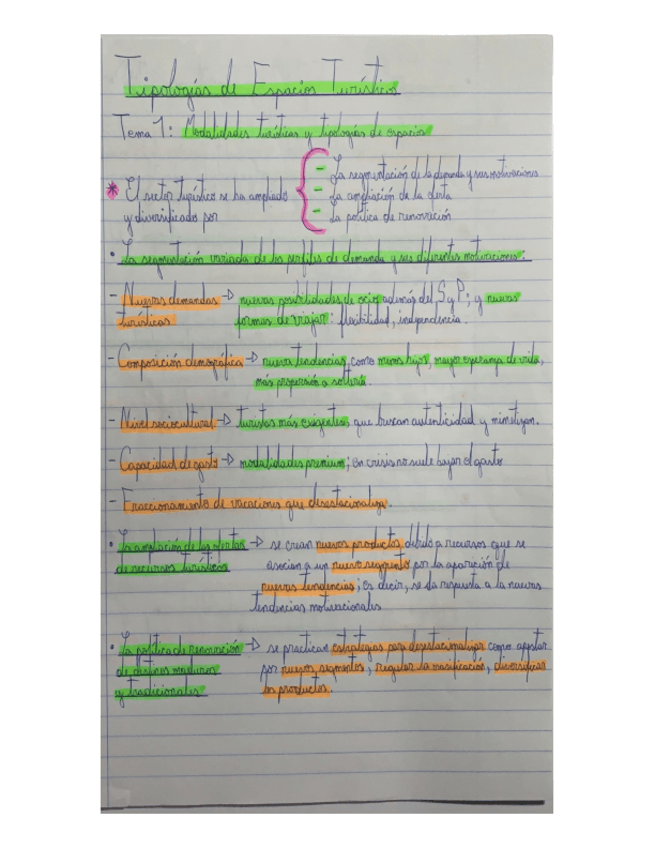 Tipologías de Espacios Turísticos
Tema 1: Modalidades turísticas y tipologías de espacio
* El sector turístico se ha ampliado y diversificados por
- La segmentación de la demanda y sus motivaciones
- La ampliación de la oferta
- La política de renovación
• La segmentación variada de los perfiles de demanda y sus diferentes motivaciones:
- Nuevas demandas → nuevas posibilidades de ocio además del S y P; y nuevas
turísticas formas de viajar: flexibilidad, independencia.
- Composición demográfica → nuevas tendencias, como menos hijos, mayor esperanza de vida,
más propensión a soltería.
- Nivel sociocultural → turistas más exigentes, que buscan autenticidad y mimetizan.
- Capacidad de gasto → modalidades premium; en crisis no suele bajar el gasto
- Fraccionamiento de vacaciones que desestacionaliza.
• La ampliación de las ofertas → se crean nuevos productos debido a recursos que se
de recursos turísticos asocian a un nuevo segmento por la aparición de
nuevas tendencias; es decir, se da respuesta a la nuevas
tendencias motivacionales
• La política de renovación → se practican estrategias para desestacionalizar como apostar
de destinos maduros por nuevos segmentos, regular la masificación, diversificar
y tradicionales los productos.